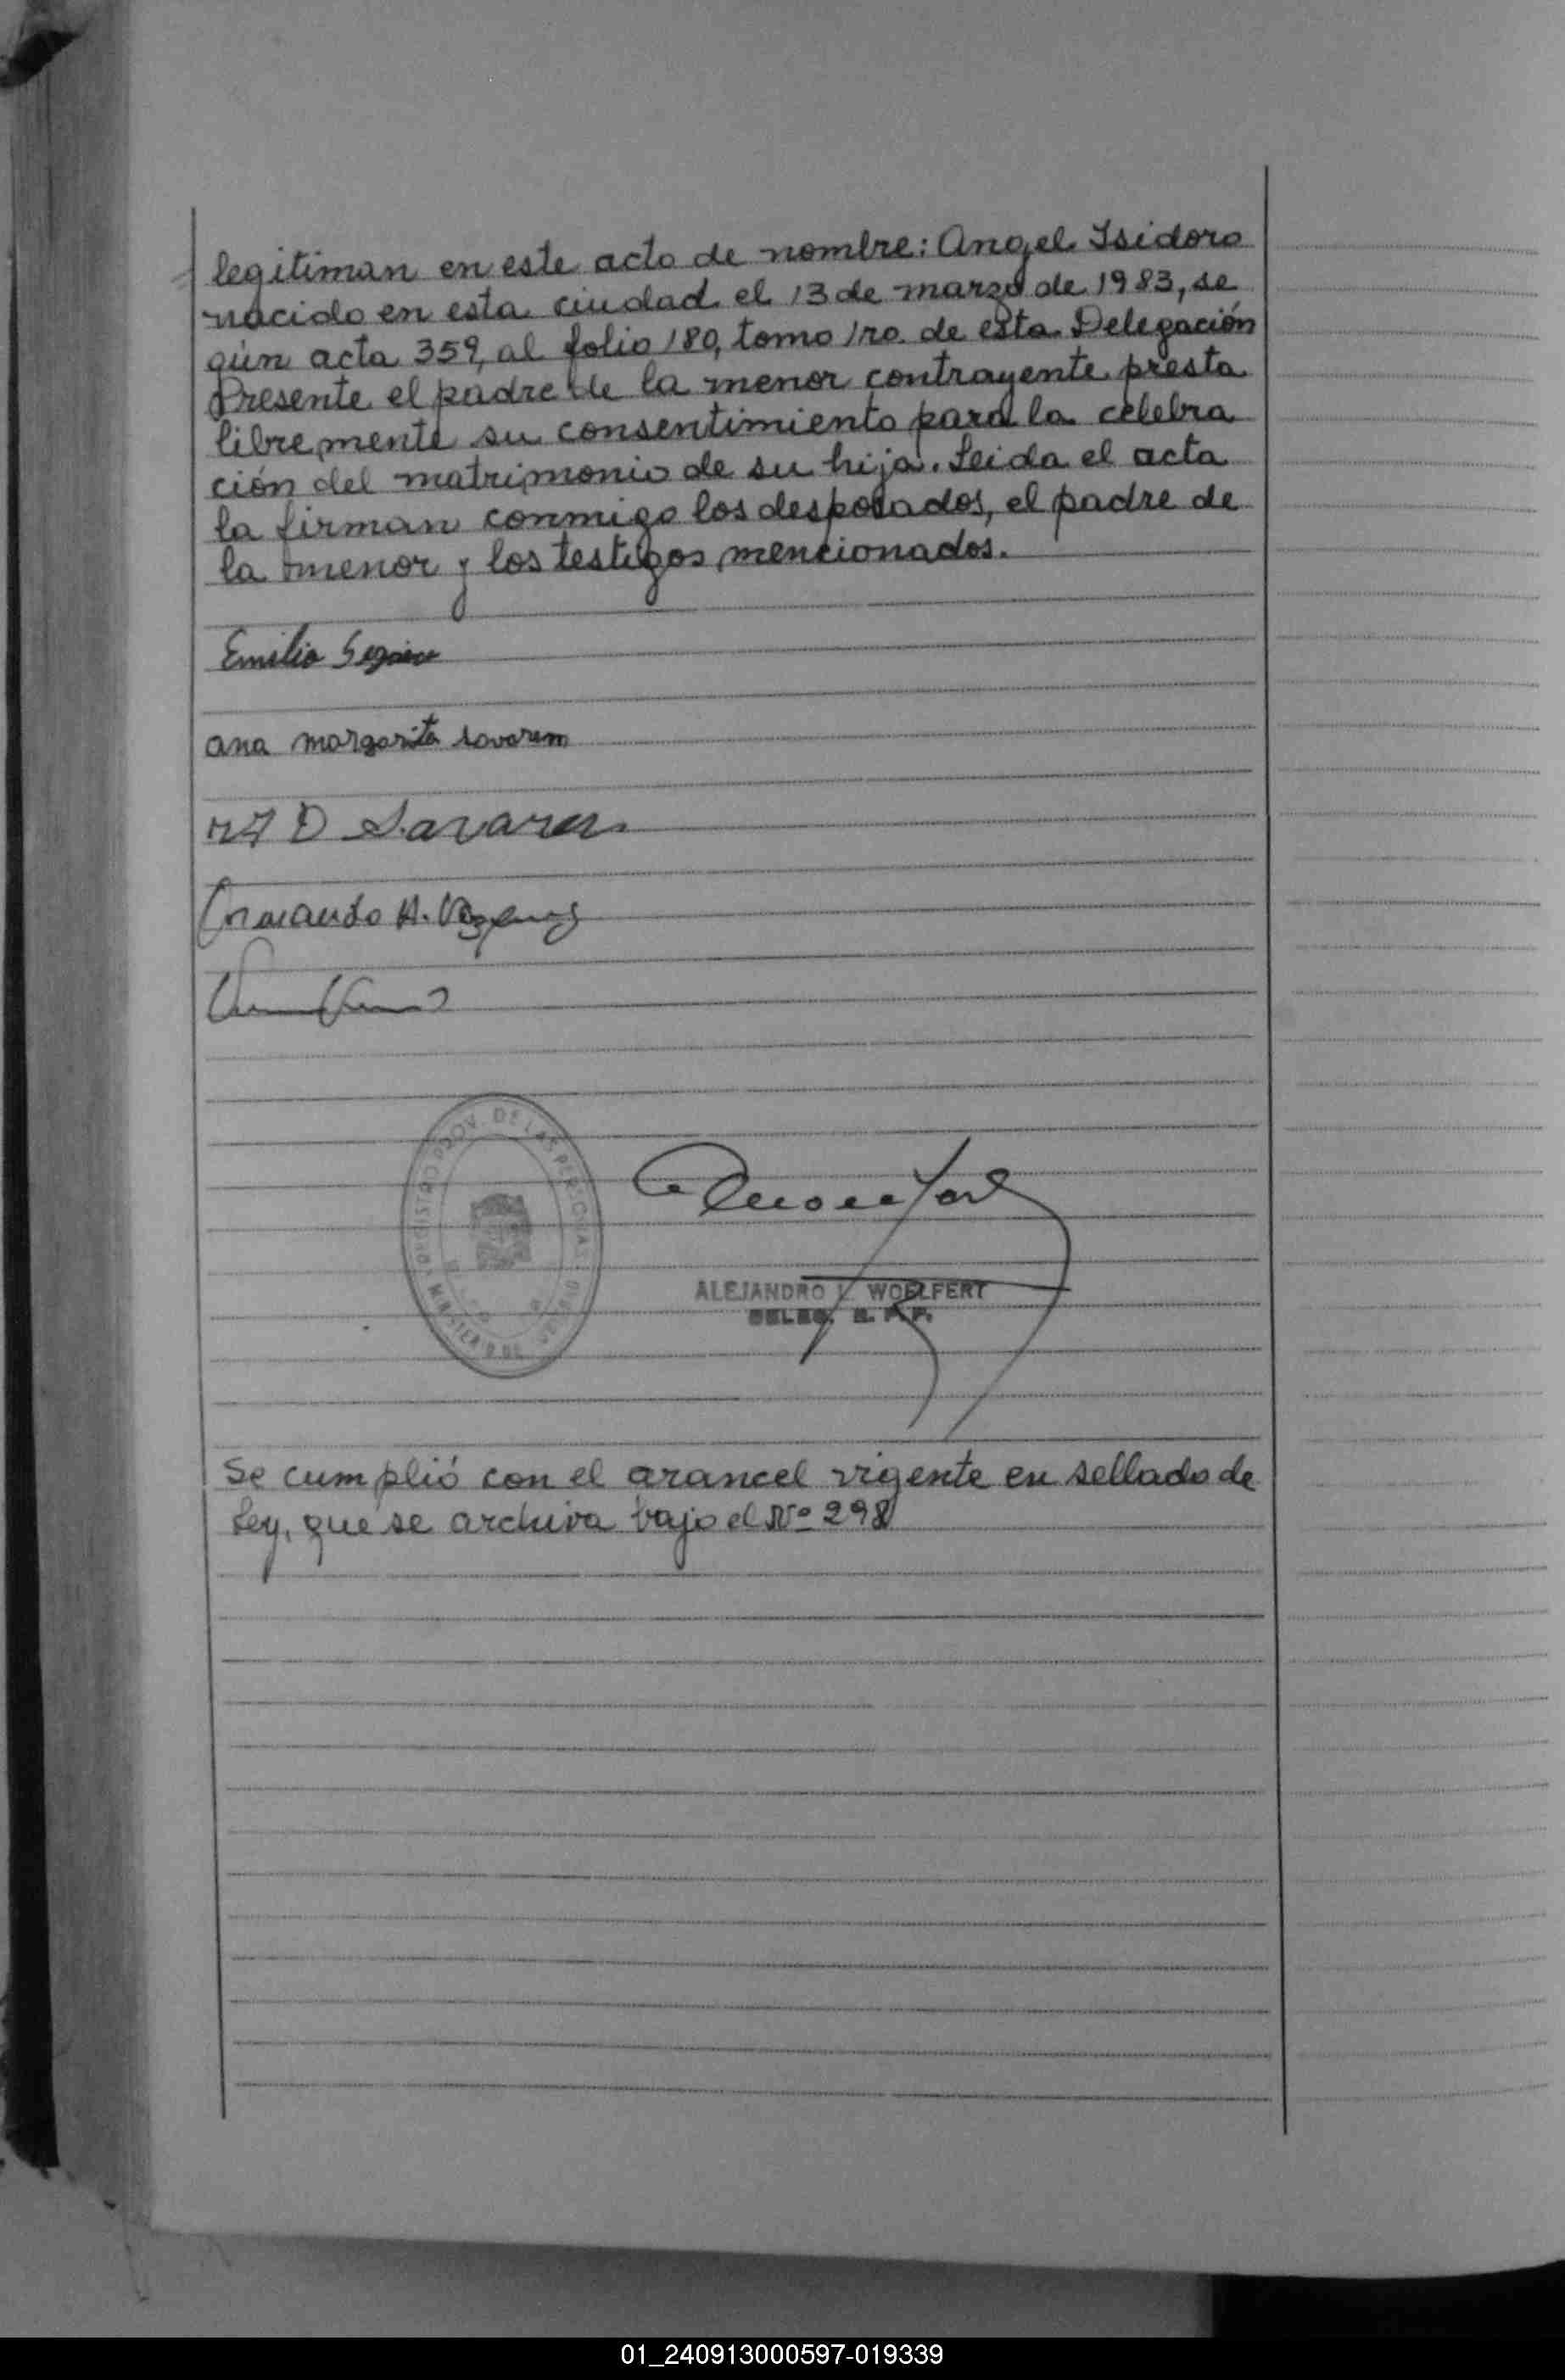 legitiman en este acto de nombre: Angel Isidoro
nacido en esta ciudad el 13 de marzo de 1983, se
gún acta 359, al folio 180, tomo 1ro. de esta Delegación
Presente el padre de la menor contrayente presta
libremente su consentimiento para la celebra
ción del matrimonio de su hija. Leida el acta
la firman conmigo los desposados, el padre de
la menor y los testigos mencionados.
Emilio
ana margarita
Armando A.
REGISTRO PROV. DE LAS PERSONAS
MINISTERIO DE
ALEJANDRO L. WOELFERT
DELEG. R. P. P.
Se cumplió con el arancel vigente en sellado de
Ley, que se archiva bajo el Nº 298
01_240913000597-019339